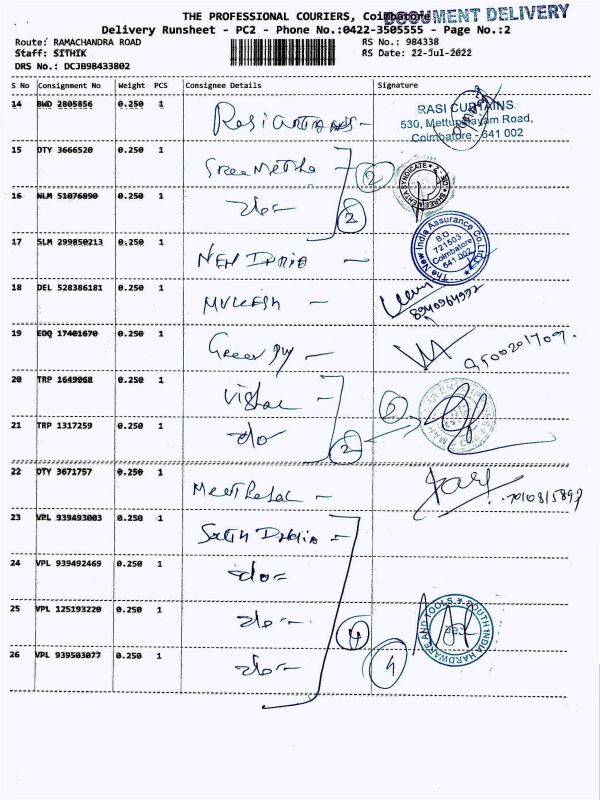 THE PROFESSIONAL COURIERS, Coimbatore
DOCUMENT DELIVERY
Delivery Runsheet - PC2 - Phone No.:0422-3505555 - Page No.:2
Route: RAMACHANDRA ROAD
RS No.: 984338
Staff: SITHIK
RS Date: 22-Jul-2022
DRS No.: DCJB98433802
S No Consignment No Weight PCS Consignee Details Signature
14 BWD 2805856 0.250 1
RASI CURTAINS
530, Mettupalayam Road,
Coimbatore - 641 002
15 OTY 3666520 0.250 1 Sree Metha
2
SHREE MEHTA SYNDICATE
16 NLM 51076890 0.250 1 do
2
17 SLM 299850213 0.250 1 NEW INDIA
The New India Assurance Co.Ltd
B.O.
721503
Coimbatore
641 002
18 DEL 528386181 0.250 1 MUKESH
19 EDQ 17401670 0.250 1
9500201709
20 TRP 1649068 0.250 1
21 TRP 1317259 0.250 1 do
2
22 OTY 3671757 0.250 1
7010815897
23 VPL 939493003 0.250 1 South India
24 VPL 939492469 0.250 1 do
25 VPL 125193220 0.250 1 do
4
SOUTH INDIA HARDWARE AND TOOLS
26 VPL 939503077 0.250 1 do
4